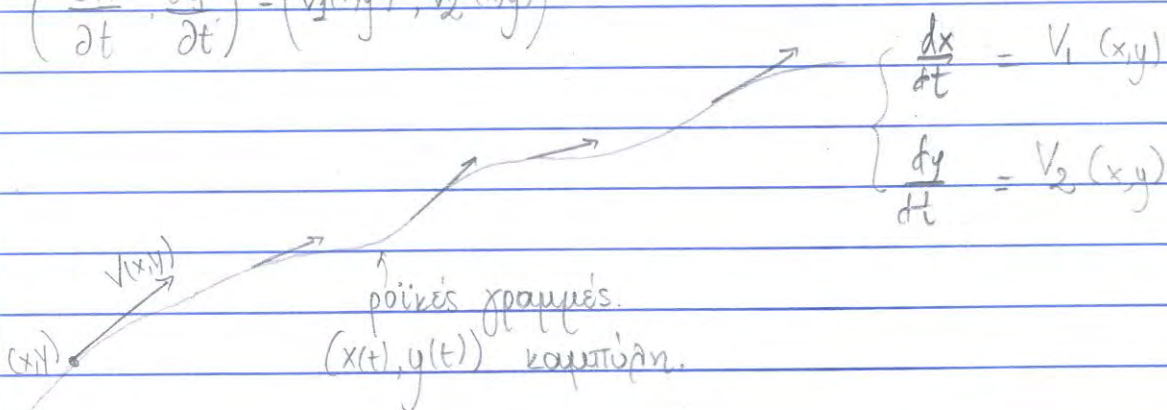 ∂t ∂t ) = (V1(x,y), V2(x,y))
dx/dt = V1 (x,y)
dy/dt = V2 (x,y)
V(x,y)
ροϊκές γραμμές.
(x,y) (x(t), y(t)) καμπύλη.